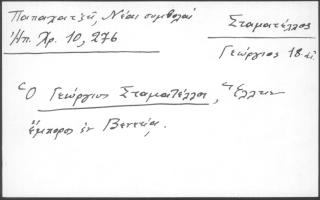 Παπαχατζῆ, Νέαι συμβολαί
Ἠπ. Χρ. 10, 276
Σταματέλλος
Γεώργιος 18. αἰ.
Ὁ Γεώργιος Σταματέλλος, Ἕλλην
ἔμπορος ἐν Βενετίᾳ.